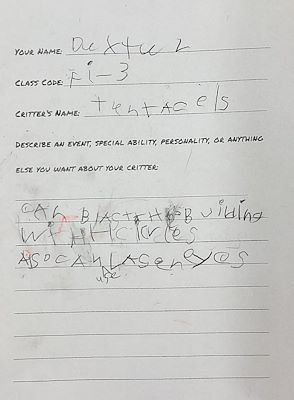 YOUR NAME: Dextuer
CLASS CODE: Fi-3
CRITTER'S NAME: tentacels
DESCRIBE AN EVENT, SPECIAL ABILITY, PERSONALITY, OR ANYTHING
ELSE YOU WANT ABOUT YOUR CRITTER:
CAN BLACT A Building
WITH CIRCLES
ALSO CAN use LASEr eyes